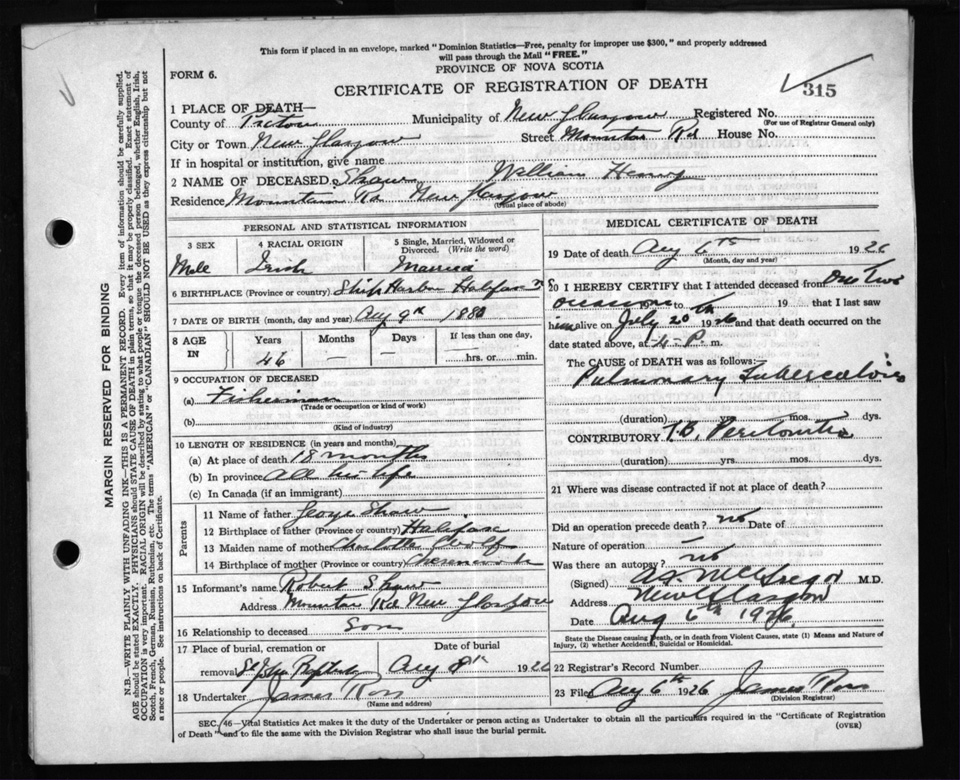 This form if placed in an envelope, marked "Dominion Statistics—Free, penalty for improper use $300," and properly addressed
will pass through the Mail "FREE."
PROVINCE OF NOVA SCOTIA
FORM 6.
CERTIFICATE OF REGISTRATION OF DEATH
315
1 PLACE OF DEATH—
County of Pictou Municipality of New Glasgow Registered No.
(For use of Registrar General only)
City or Town New Glasgow Street Mountain Rd House No.
If in hospital or institution, give name
2 NAME OF DECEASED Shaw William Henry
Residence Mountain Rd New Glasgow
(Usual place of abode)
PERSONAL AND STATISTICAL INFORMATION
3 SEX 4 RACIAL ORIGIN 5 Single, Married, Widowed or
Divorced. (Write the word)
Male Irish Married
6 BIRTHPLACE (Province or country) Ship Harbor Halifax
7 DATE OF BIRTH (month, day and year) Aug 9th 1880
8 AGE IN Years Months Days If less than one day,
46 — — hrs. or min.
9 OCCUPATION OF DECEASED
(a) Fisherman
(Trade or occupation or kind of work)
(b)
(Kind of industry)
10 LENGTH OF RESIDENCE (in years and months)
(a) At place of death 18 months
(b) In province all his life
(c) In Canada (if an immigrant)
Parents
11 Name of father George Shaw
12 Birthplace of father (Province or country) Halifax
13 Maiden name of mother Charlotte Wolf
14 Birthplace of mother (Province or country)
15 Informant's name Robert Shaw
Address Mountain Rd New Glasgow
16 Relationship to deceased Son
17 Place of burial, cremation or Date of burial
removal Aug 8th 1926
18 Undertaker James Ross
(Name and address)
MEDICAL CERTIFICATE OF DEATH
19 Date of death Aug 6th 1926
(Month, day and year)
20 I HEREBY CERTIFY that I attended deceased from One Two
occasions to 192 that I last saw
him alive on July 20th 1926 and that death occurred on the
date stated above, at 4-P. m.
The CAUSE OF DEATH was as follows:
Pulmonary Tuberculosis
(duration) mos. dys.
CONTRIBUTORY T.B. Peritonitis
(duration) yrs. mos. dys.
21 Where was disease contracted if not at place of death?
Did an operation precede death? no Date of
Nature of operation —
Was there an autopsy? no
(Signed) McGregor M.D.
Address New Glasgow
Date Aug 6th 1926.
State the Disease causing Death, or in death from Violent Causes, state (1) Means and Nature
of Injury, (2) whether Accidental, Suicidal or Homicidal.
22 Registrar's Record Number
23 Filed Aug 6th 1926 James Ross
(Division Registrar)
SEC. 46—Vital Statistics Act makes it the duty of the Undertaker or person acting as Undertaker to obtain all the particulars required in the "Certificate of Registration
of Death" and to file the same with the Division Registrar who shall issue the burial permit.
(OVER)
MARGIN RESERVED FOR BINDING
N.B.—WRITE PLAINLY WITH UNFADING INK—THIS IS A PERMANENT RECORD. Every item of information should be carefully supplied.
AGE should be stated EXACTLY. PHYSICIANS should STATE CAUSE OF DEATH in plain terms, so that it may be properly classified. Exact statement of
OCCUPATION is very important. RACIAL ORIGIN will be described by stating to what people or tongue the deceased person belonged, whether English, Irish,
Scotch, French, German, Russian, Ruthenian, etc. The terms "AMERICAN" or "CANADIAN" SHOULD NOT BE USED as they express citizenship but not
a race or people. See instructions on back of Certificate.